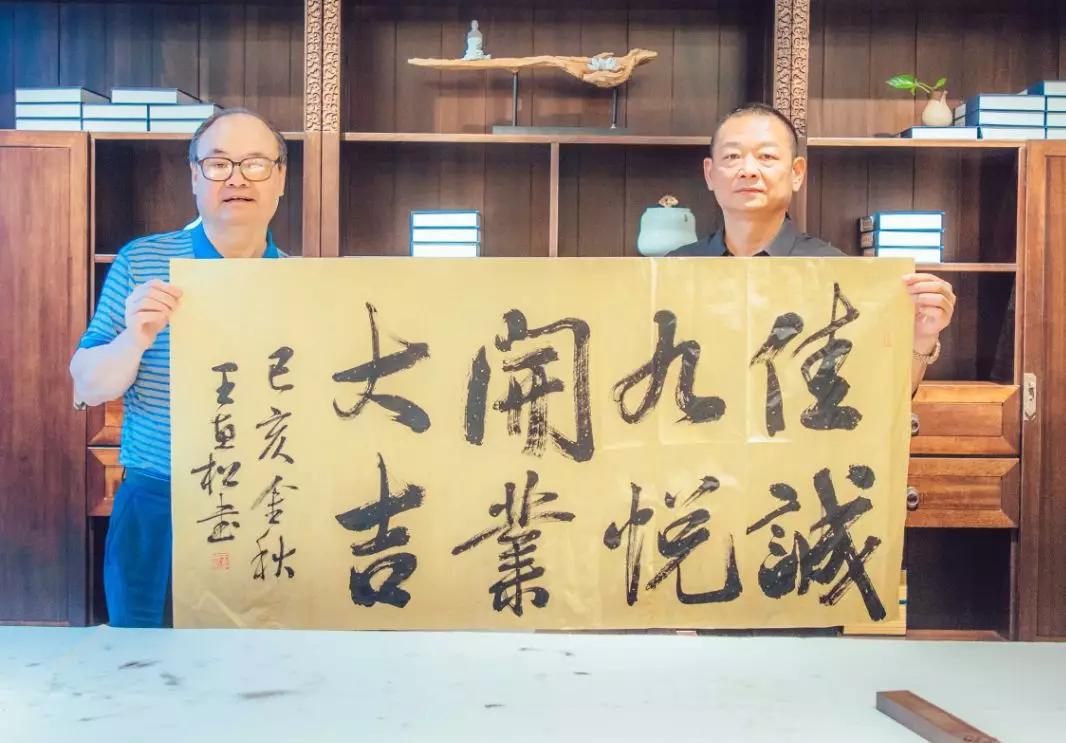 佳誠
九悦
開業
大吉
己亥金秋
王惠松书